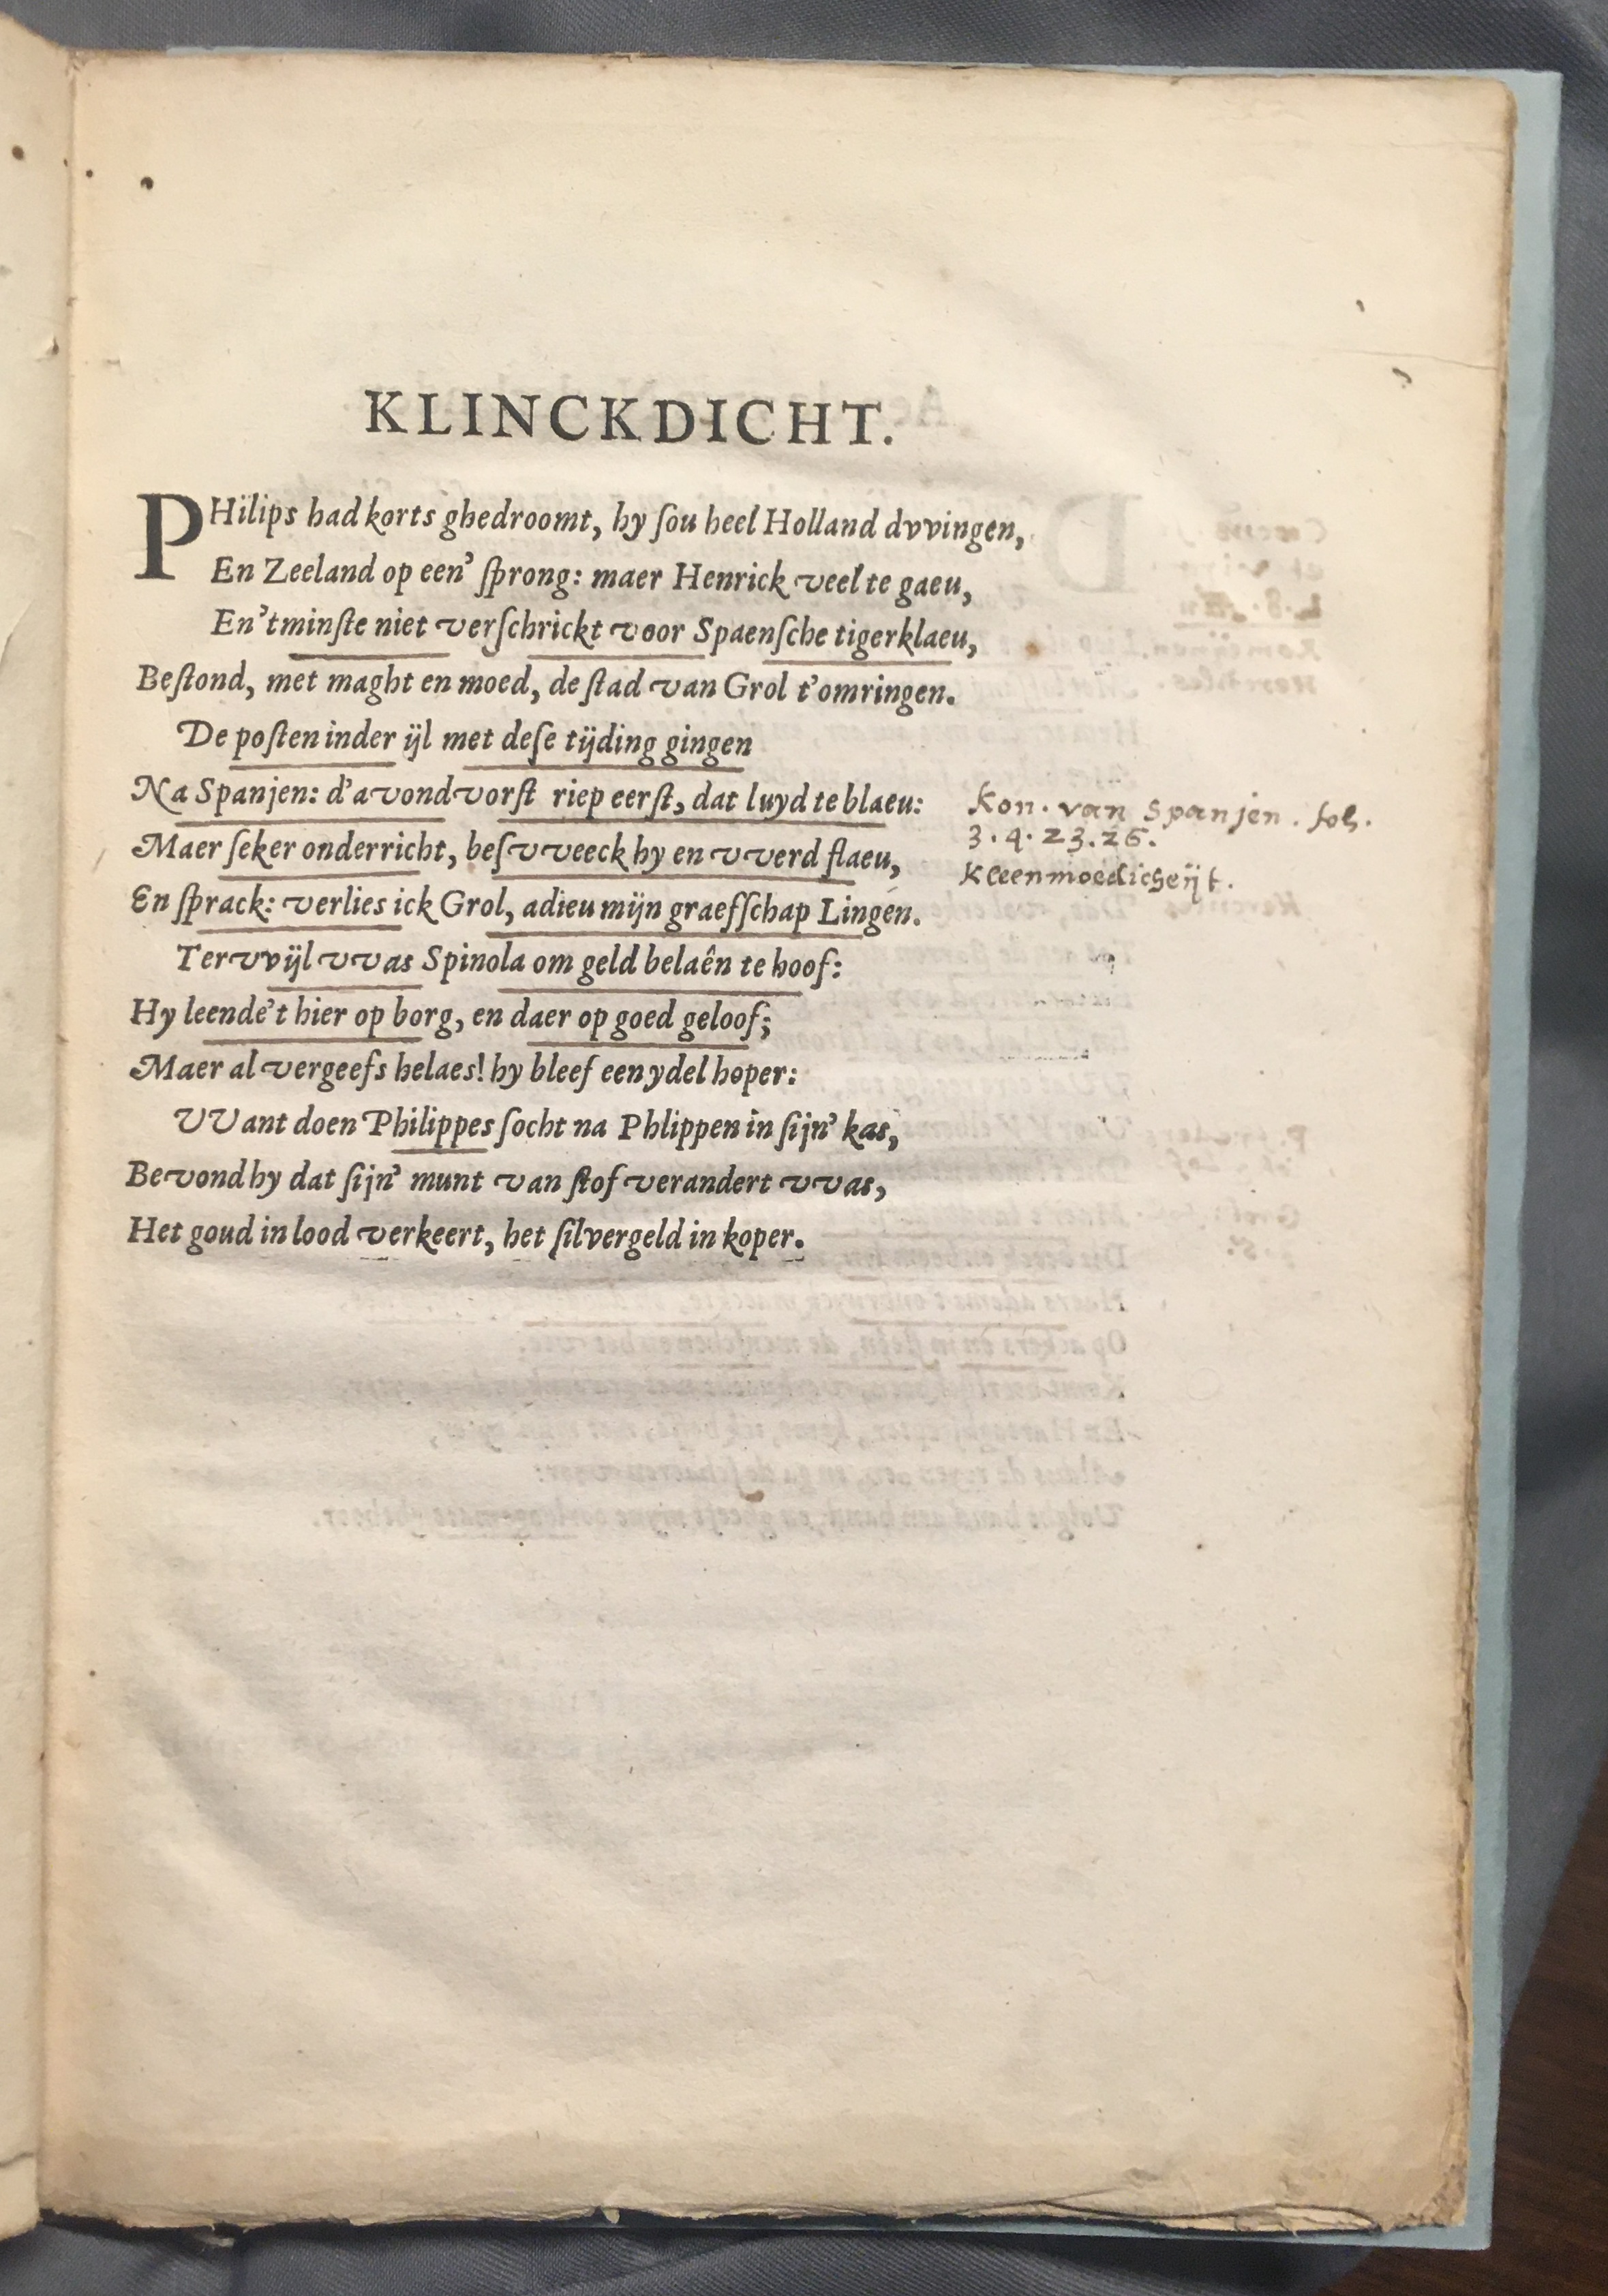 KLINCKDICHT.
PHilips had korts ghedroomt, hy ſou heel Holland dvvingen,
En Zeeland op een' ſprong: maer Henrick veel te gaeu,
En 't minſte niet verſchrickt voor Spaenſche tigerklaeu,
Beſtond, met maght en moed, de ſtad van Grol t'omringen.
De poſten inder ijl met deſe tijding gingen
Na Spanjen: d'avondvorſt riep eerſt, dat luyd te blaeu:
Kon. van Spanjen. fol.
3.4.23.26.
Maer ſeker onderricht, beſvveeck hy en vverd flaeu,
Kleenmoedicheijt.
En ſprack: verlies ick Grol, adieu mijn graefſchap Lingen.
Tervvijl vvas Spinola om geld belaên te hoof:
Hy leende't hier op borg, en daer op goed geloof;
Maer al vergeefs helaes! hy bleef een ydel hoper:
VVant doen Philippes ſocht na Phlippen in ſijn' kas,
Bevond hy dat ſijn' munt van ſtof verandert vvas,
Het goud in lood verkeert, het ſilvergeld in koper.